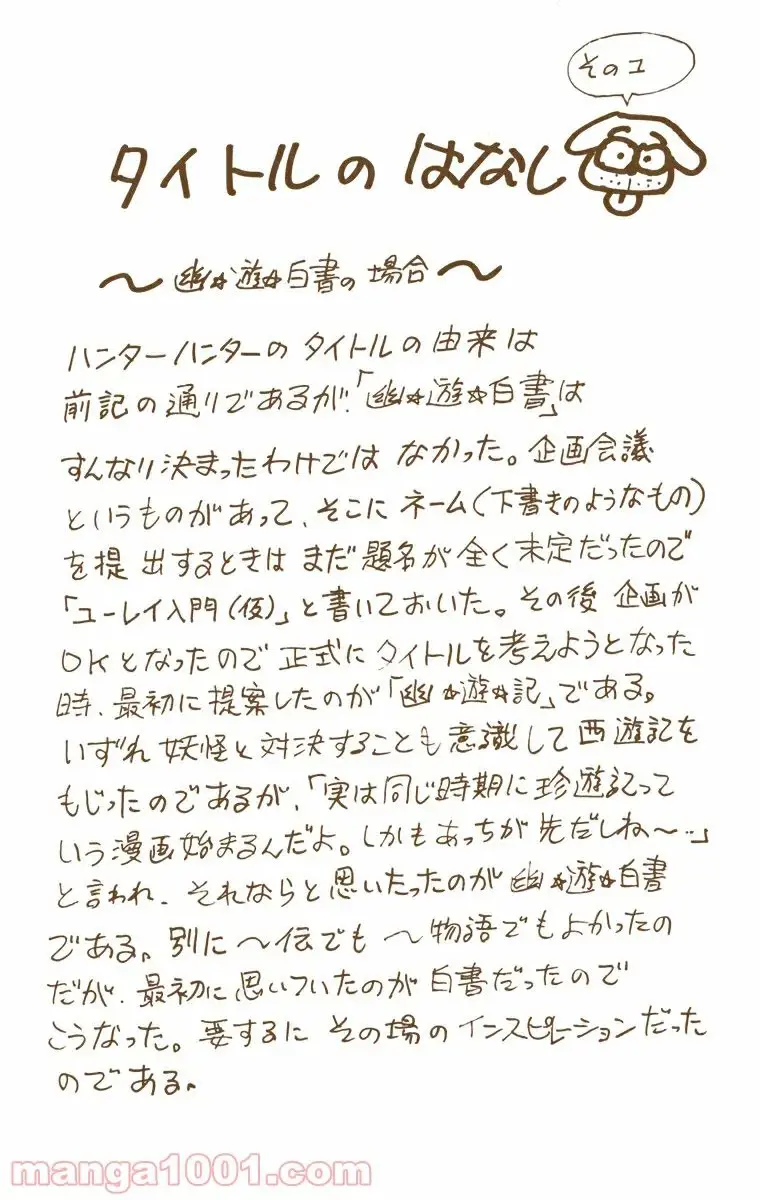 その2
タイトルの はなし
〜幽☆遊☆白書の 場合〜
ハンターハンターの タイトルの 由来は
前記の通りであるが、「幽☆遊☆白書」は
すんなり決まったわけでは なかった。企画会議
というものがあって、そこに ネーム(下書きのようなもの)
を提出するときは まだ題名が全く未定だったので
「ユーレイ入門(仮)」と書いておいた。その後 企画が
OKとなったので 正式に タイトルを考えようとなった
時、最初に提案したのが「幽☆遊☆記」である。
いずれ妖怪と対決することも意識して西遊記を
もじったのであるが、「実は同じ時期に珍遊記って
いう漫画始まるんだよ。しかもあっちが先だしね〜…」
と言われ、それならと思いたったのが幽☆遊☆白書
である。別に〜伝でも〜物語でもよかったの
だが、最初に思いついたのが白書だったので
こうなった。要するに その場のインスピレーションだった
のである。
manga1001.com